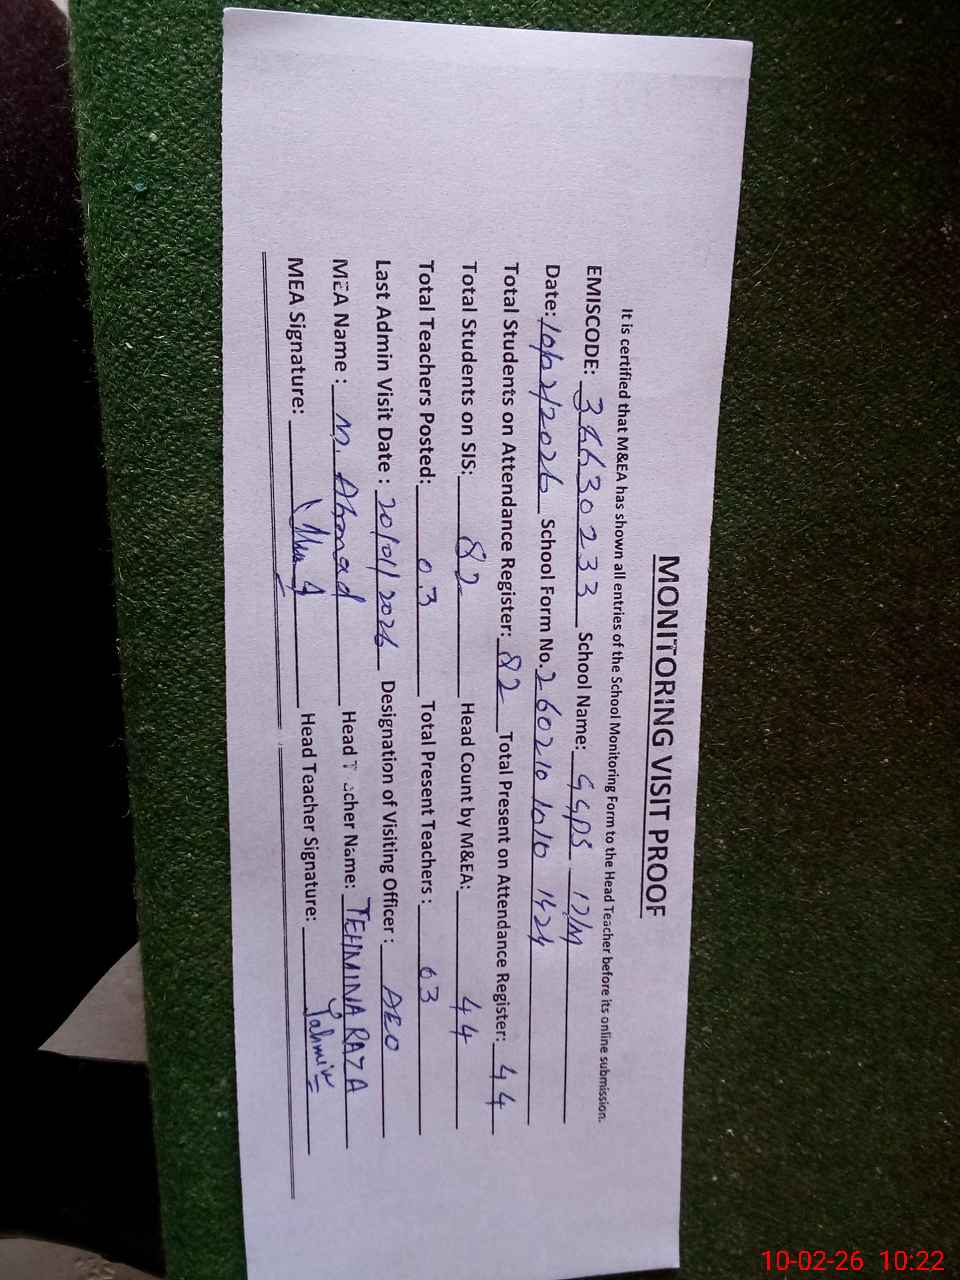 MONITORING VISIT PROOF
It is certified that M&EA has shown all entries of the School Monitoring Form to the Head Teacher before its online submission.
EMISCODE: 36630233 School Name: GGPS 17/M
Date: 10/02/2026 School Form No. 26021010101424
Total Students on Attendance Register: 82 Total Present on Attendance Register: 44
Total Students on SIS: 82 Head Count by M&EA: 44
Total Teachers Posted: 03 Total Present Teachers : 03
Last Admin Visit Date : 20/01/2026 Designation of Visiting Officer : AEO
MEA Name : M. Ahmad Head Teacher Name: TEHMINA RAZA
MEA Signature: Head Teacher Signature: Tahmin
10-02-26 10:22